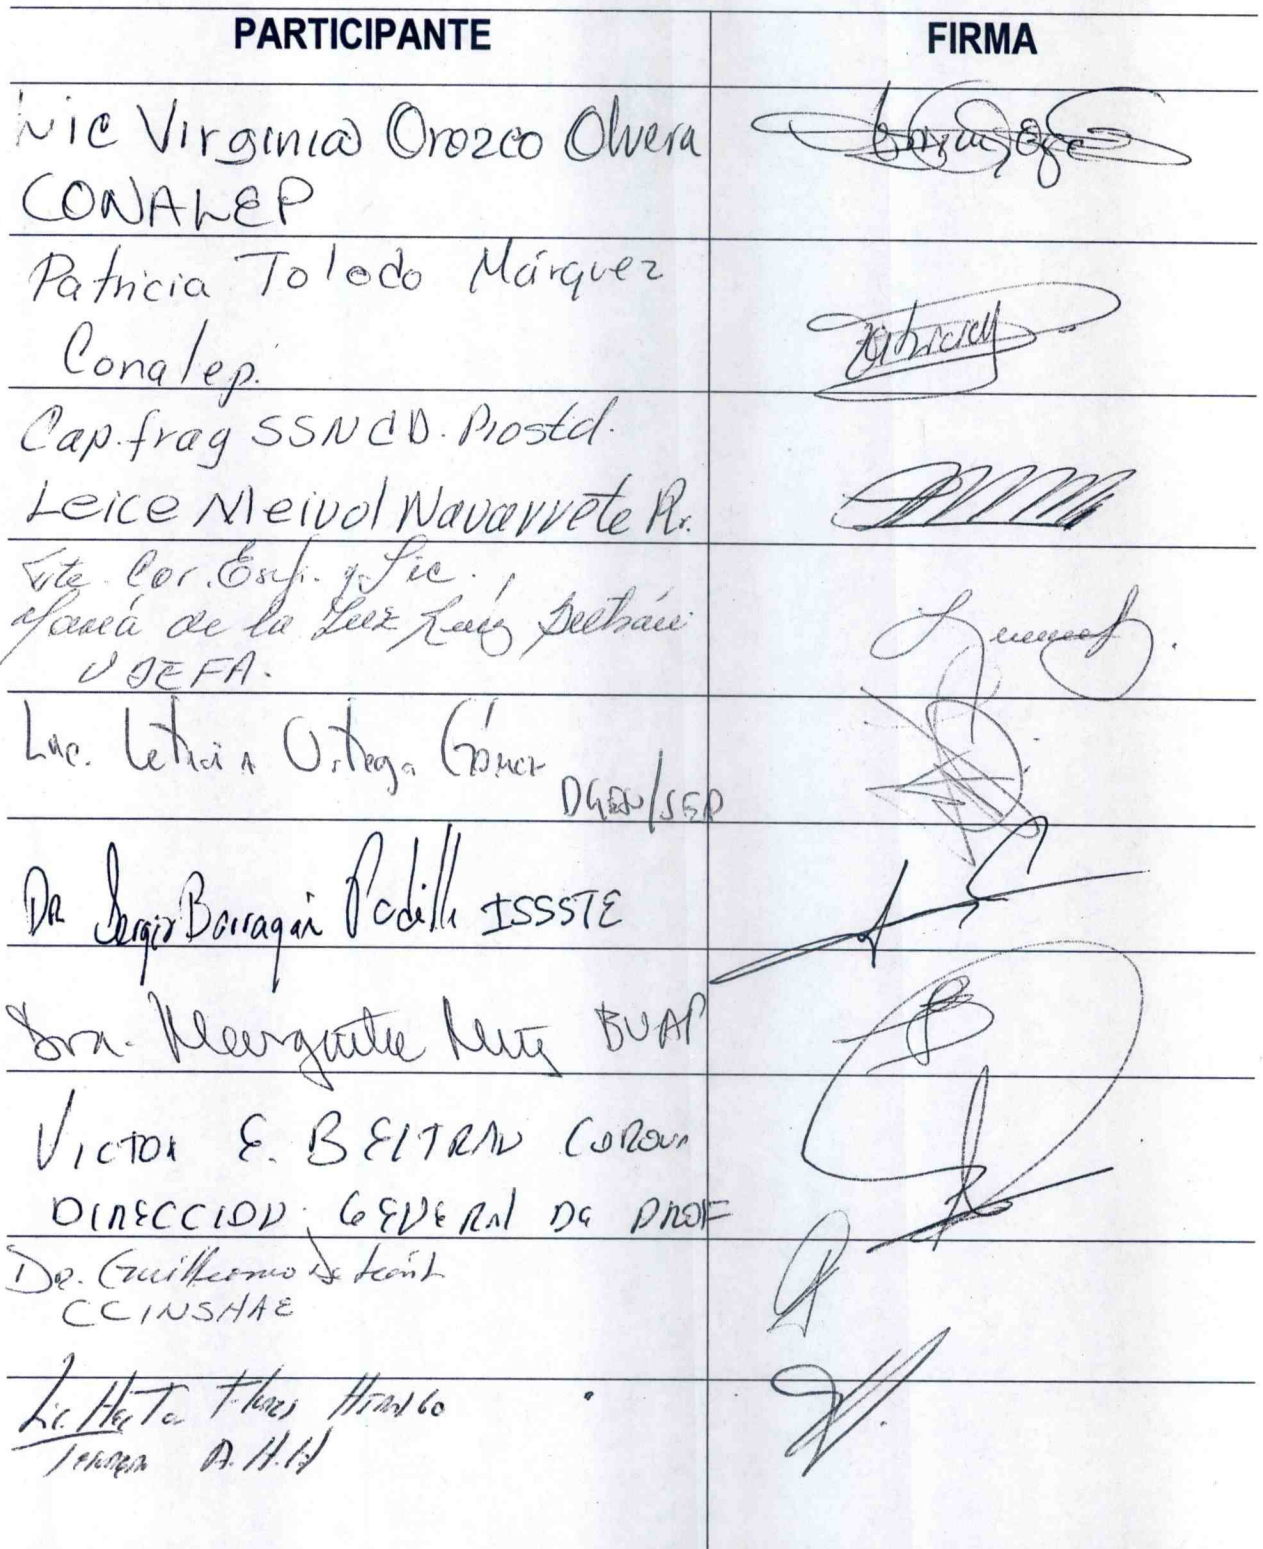 PARTICIPANTE FIRMA
Lic Virginia Orozco Olvera
CONALEP
Patricia Toledo Márquez
Conalep.
Cap. frag SSN CD. Prostd.
Leice Meivol Navarrete R.
Tte. Cor. Enf. y Lic.
María de la Luz Beltrán
Lic. Leticia Ortega Gómez
DGEN/SEP
Dr Sergio Barragán Padilla ISSSTE
Dra. BUAP
VICTOR E. BELTRAN CORONA
DIRECCION GENERAL DE PROF
Dr. Guillermo
CCINSHAE
Lic. Flores Hidalgo